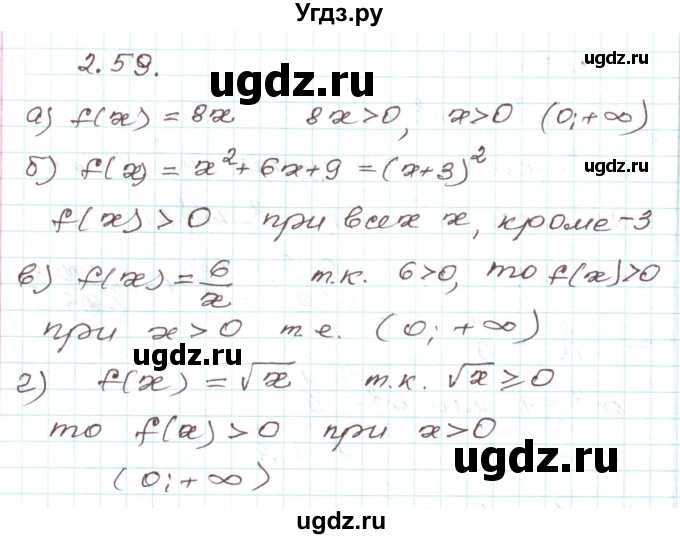 Угдз.ру
2.59.
ugdz.ru
ugdz.ru
а) f(x) = 8x   8x>0, x>0 (0;+∞)
б) f(x) = x²+6x+9 = (x+3)²
ugdz.ru
f(x) > 0 при всех x, кроме -3
в) f(x) = 6/x   т.к. 6>0, то f(x)>0
при x>0 т.е. (0;+∞)
ugdz.ru
г) f(x) = √x   т.к. √x ⩾ 0
то f(x) > 0 при x>0
ugdz.ru
(0;+∞)
ugdz.ru